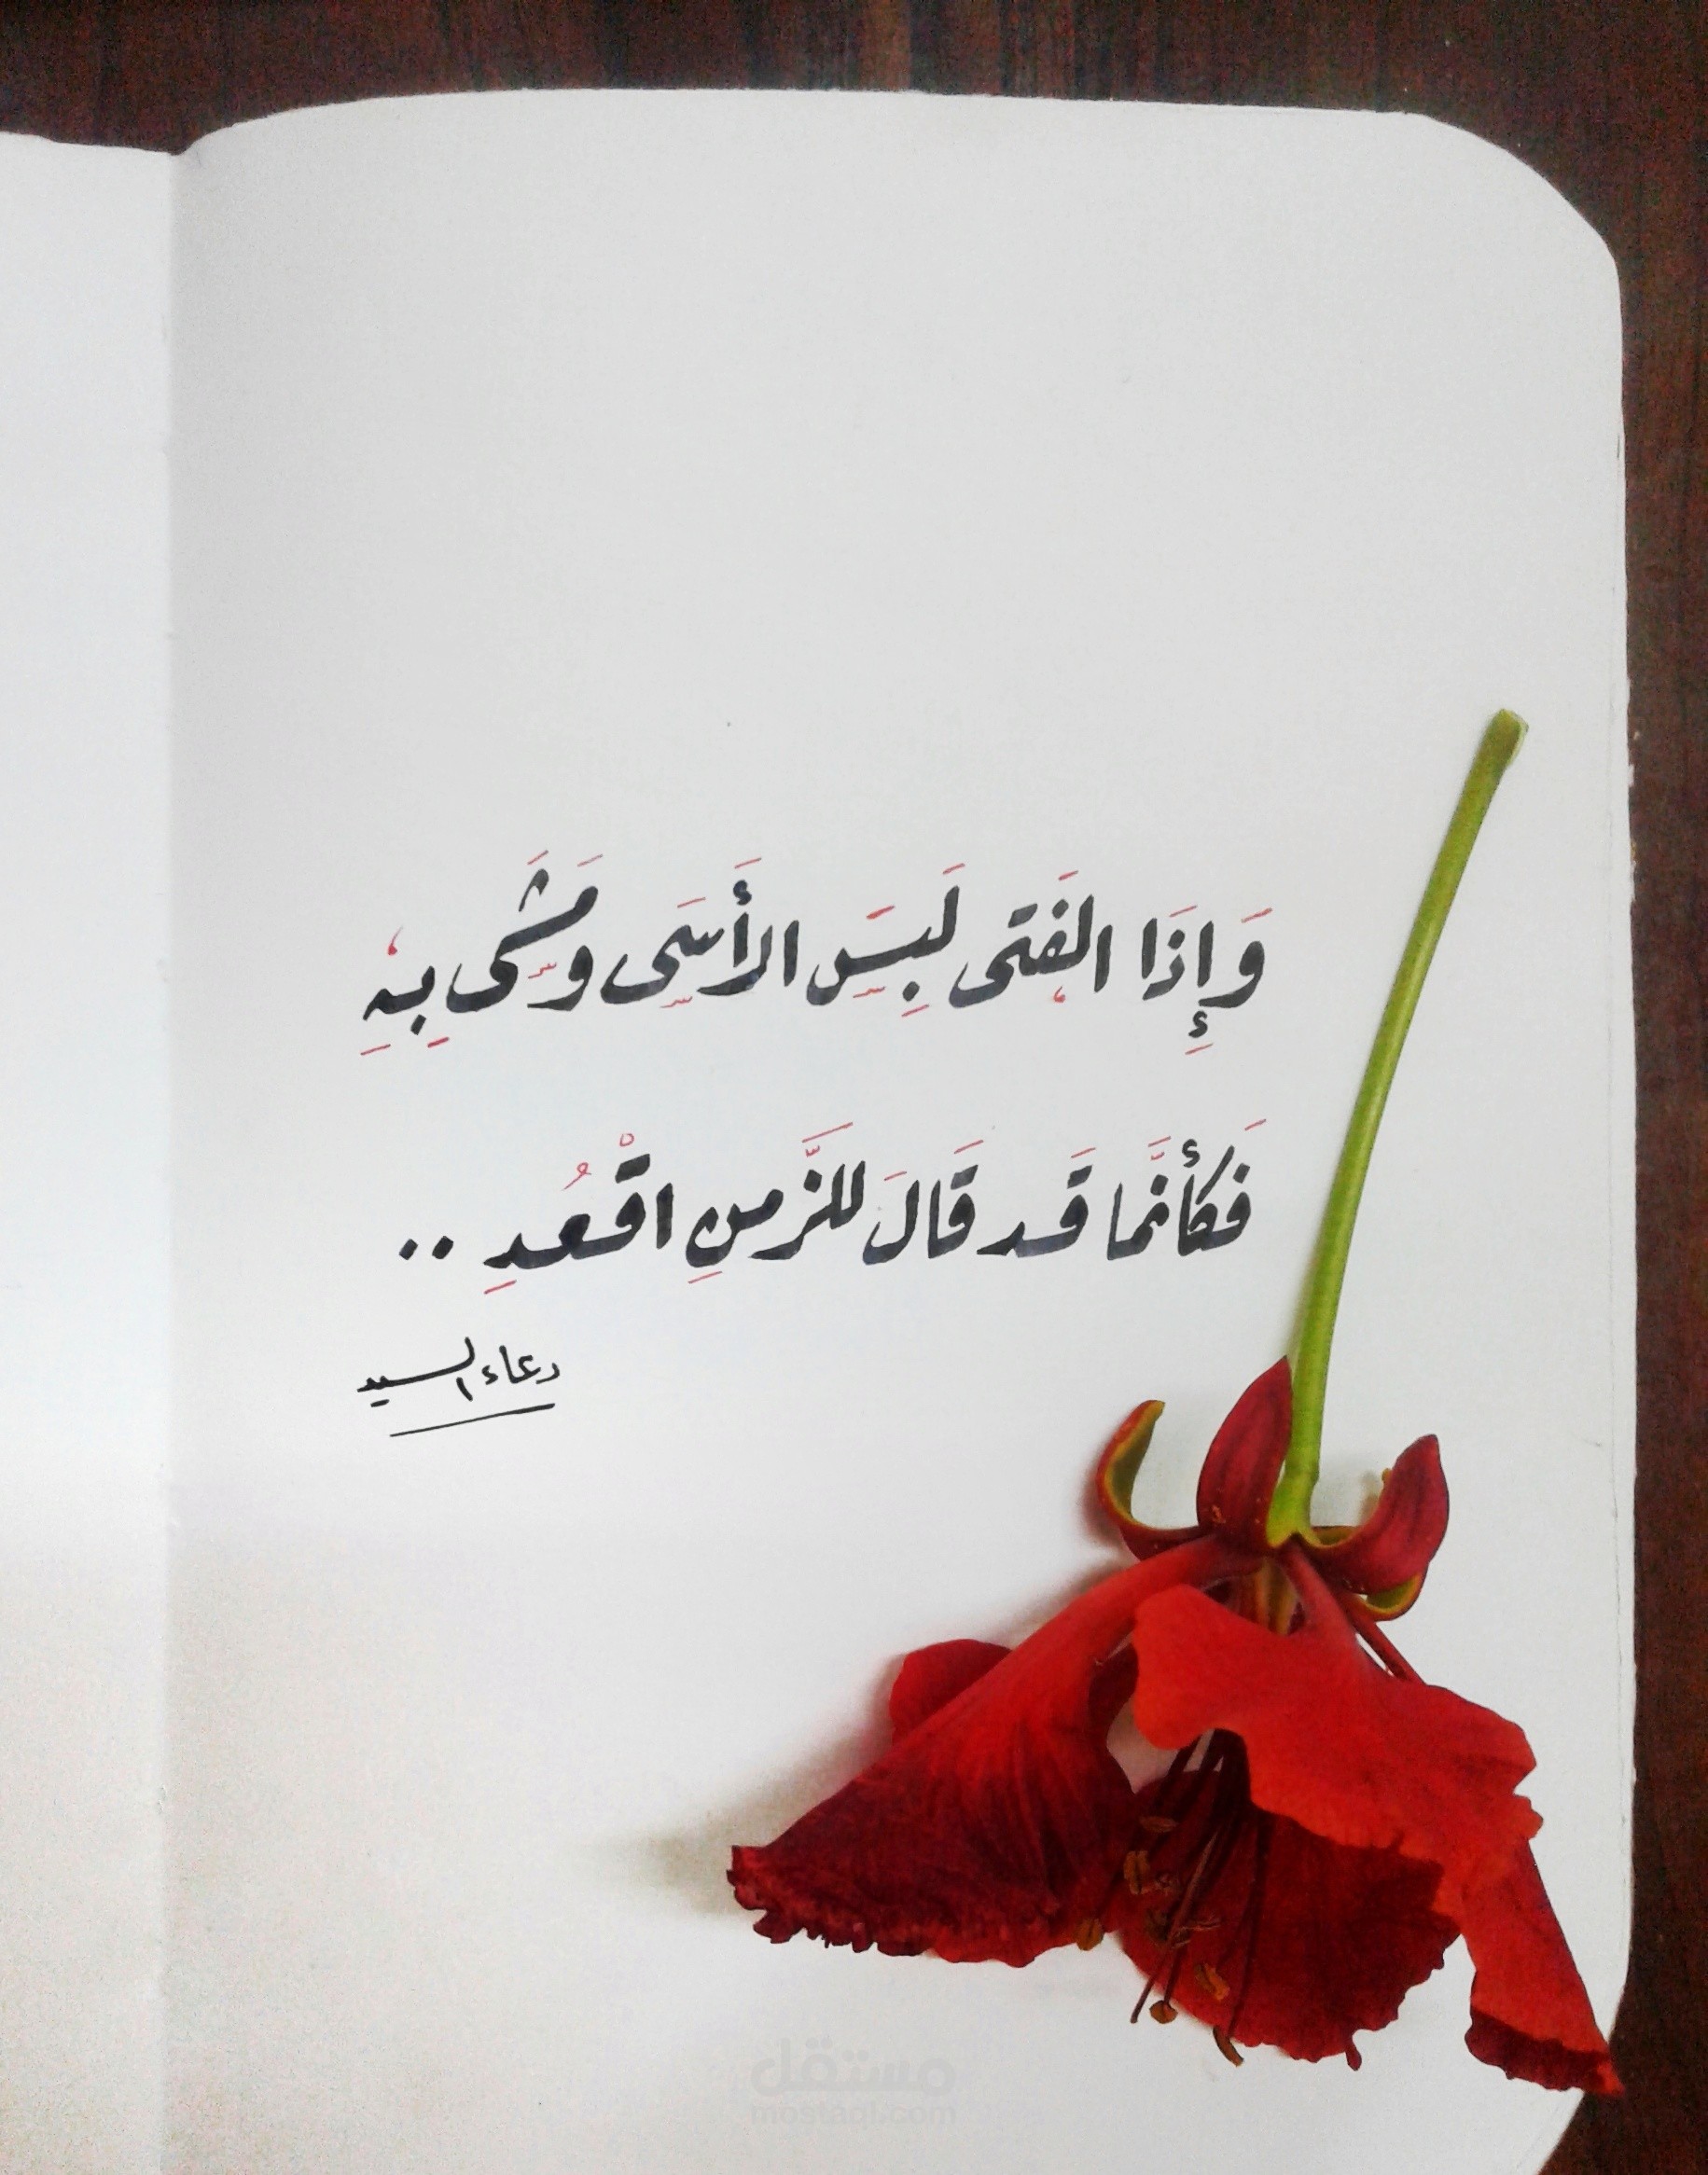 وَإِذَا الفَتى لَبِسَ الأَسَى ومَشَى بِهِ
فَكأنَّما قَد قَالَ للزَّمنِ اقْعُدِ ..
دعاء السيد
مستقل
mostaql.com